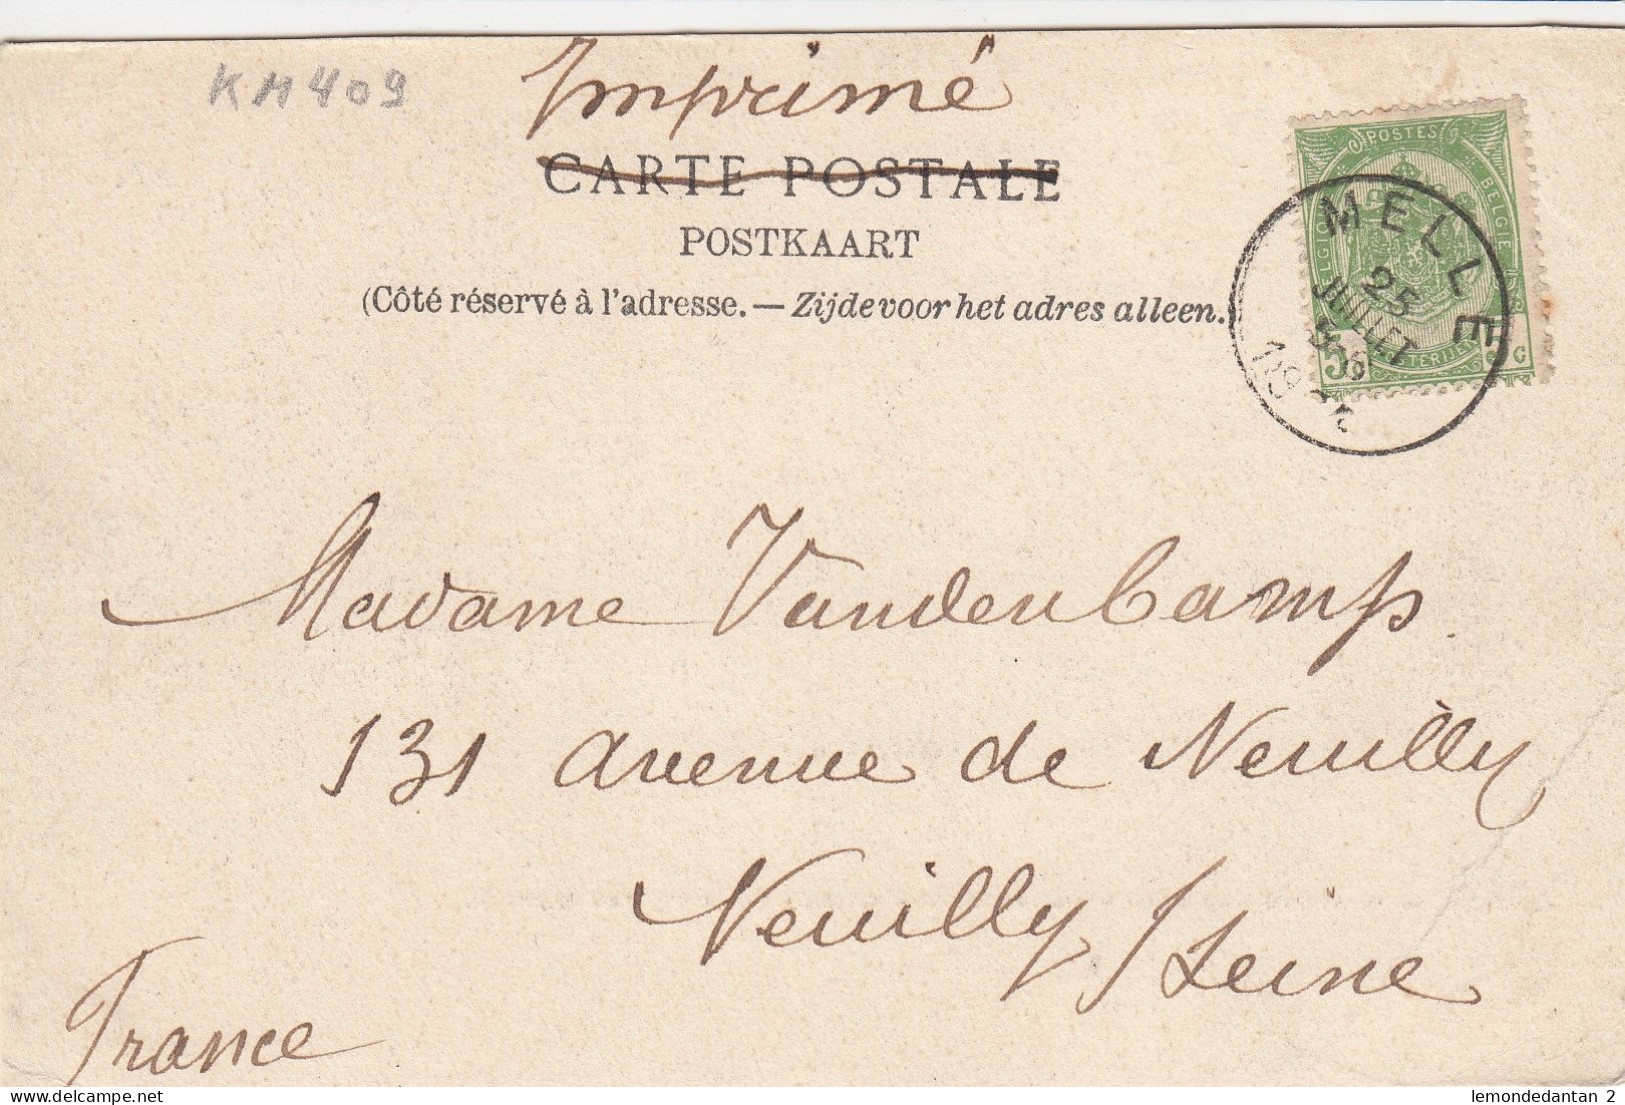 KM409
Imprimé
CARTE POSTALE
POSTKAART
(Côté réservé à l'adresse. — Zijde voor het adres alleen.)
POSTES
BELGIE
MELLE
25
JUILLET
5
Madame Vandencamp.
131 avenue de Neuilly
Neuilly / Seine
France
lemondedantan 2